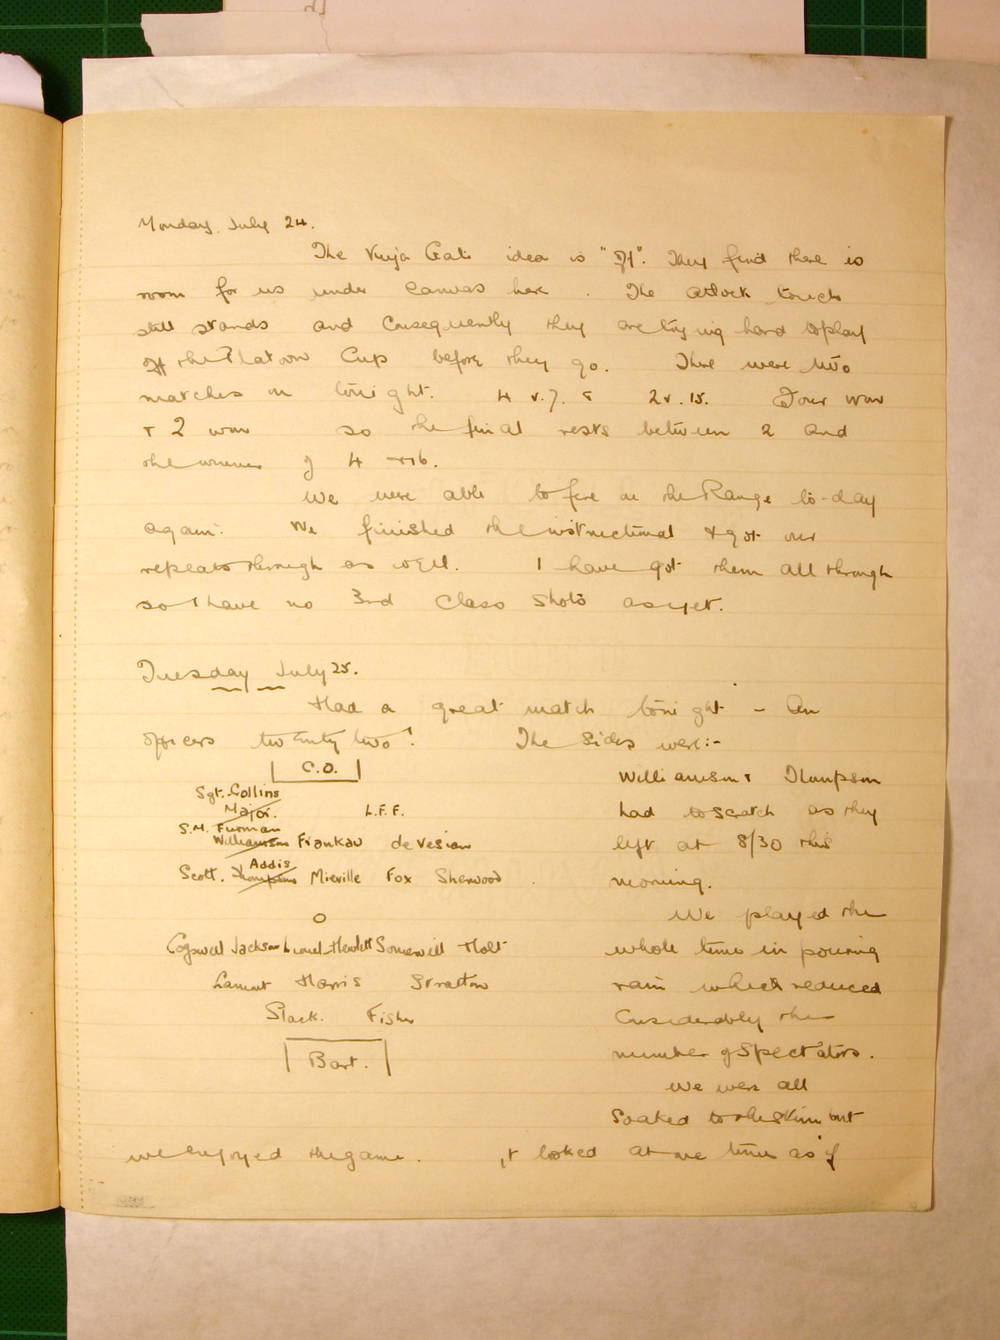 Monday. July 24.
The Kuja Gali idea is "off". They find there is
room for us under canvas here. The Attock touch
still stands and consequently they are trying hard to play
off the Platoon Cup before they go. There were two
matches on tonight. 4 v. 7. & 2 v. 15. Four won
+ 2 won so the final rests between 2 and
the winner of 4 + 16.
We were able to fire on the Range to-day
again. We finished the instructional + got our
repeats through as well. I have got them all through
so I have no 3rd Class Shots as yet.
Tuesday July 25.
Had a great match tonight - An
officers twenty two! The sides were:-
C.O.
Sgt. Collins
Major. L.F.F.
S.M. Furman
Williamson Frankau de Vesian
Addis
Scott. Thompson Mieville Fox Sherwood.
O
Cogswell Jackson Lionel-Hewlett Somervell Holt
Lamont Harris Stratton
Slack. Fisher
Bart.
Williamson & Thompson
had to scratch as they
left at 8/30 this
morning.
We played the
whole time in pouring
rain which reduced
considerably the
number of spectators.
We were all
soaked to the skin but
we enjoyed the game. It looked at one time as if